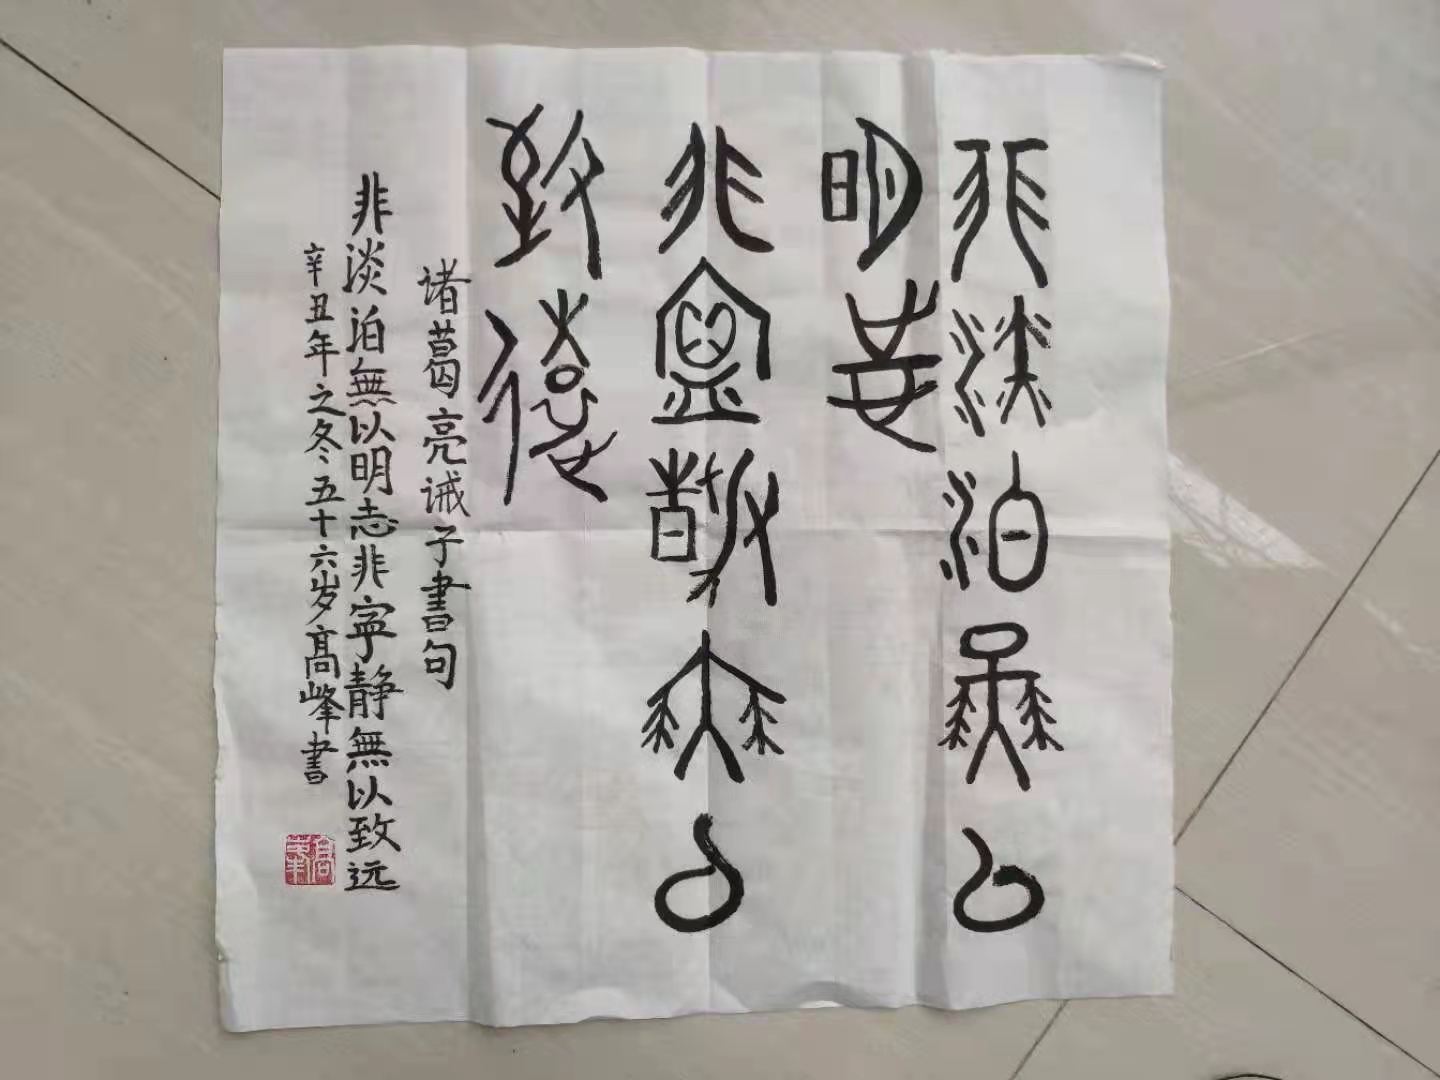 非淡泊無以
明志
非寧静無以
致遠
诸葛亮诫子書句
非淡泊無以明志非寧静無以致远
辛丑年之冬五十六岁高峰書